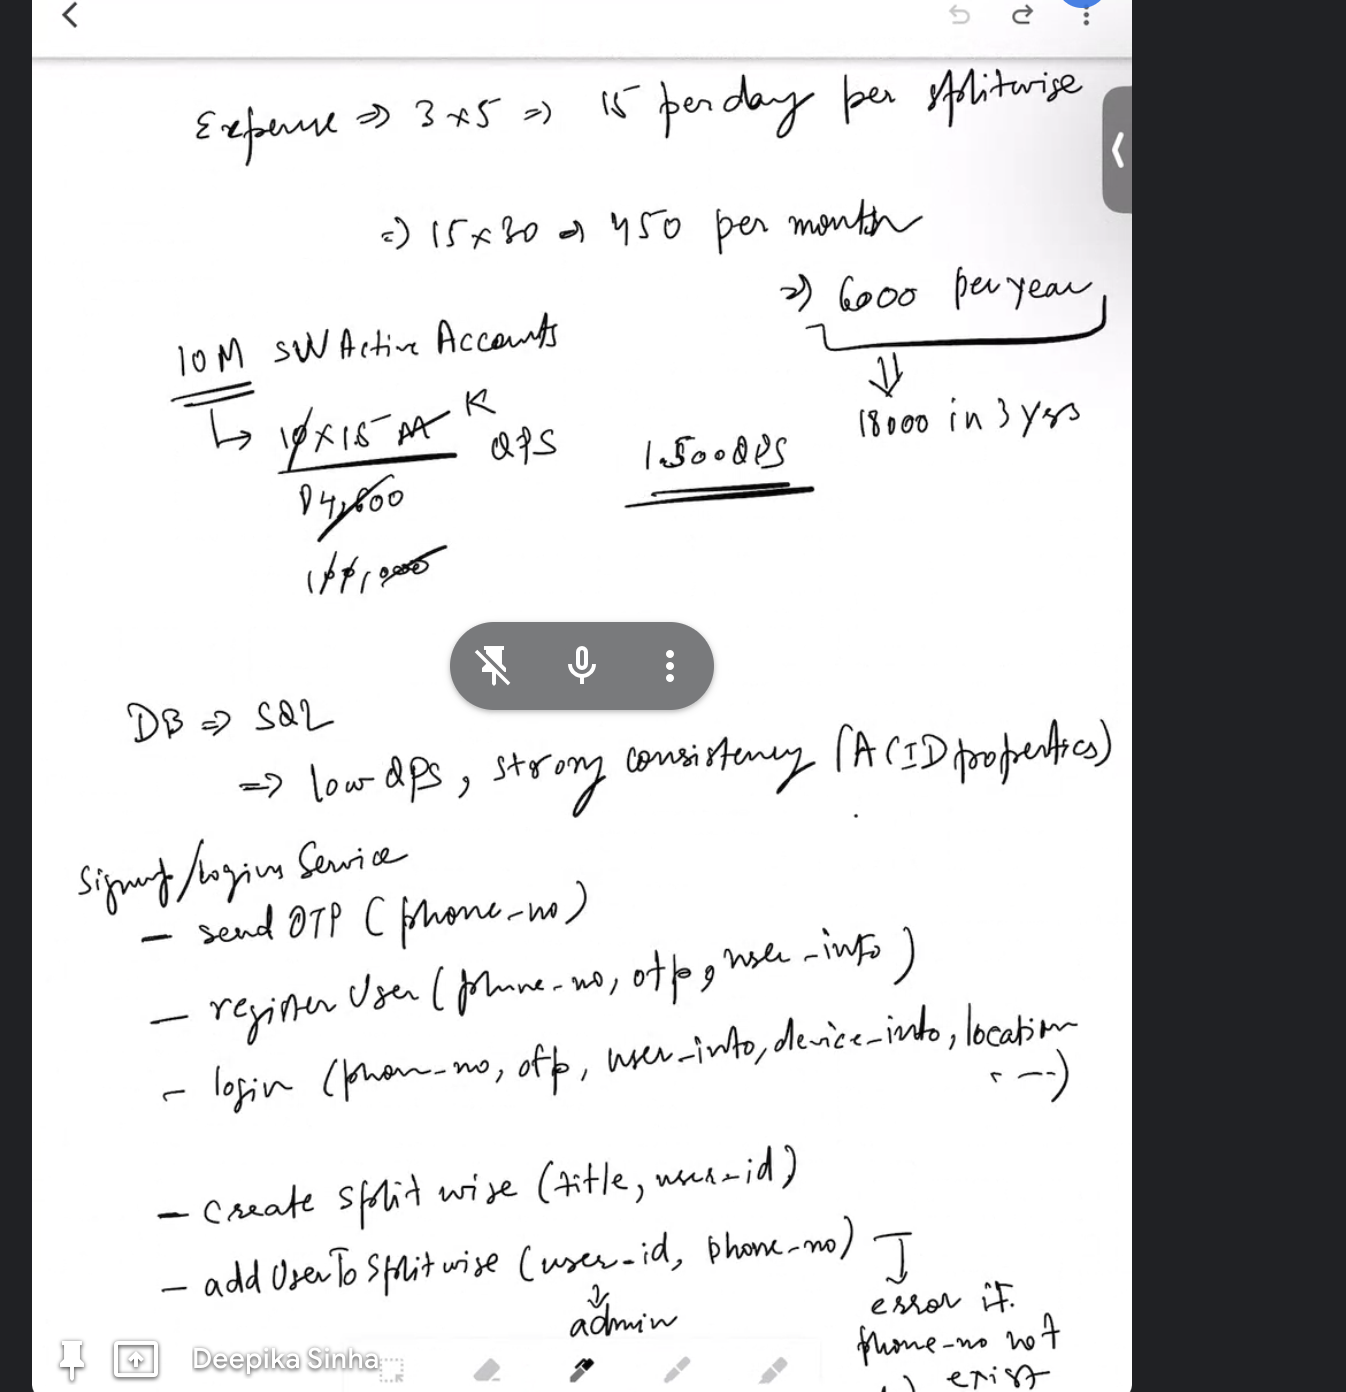 Expense => 3 x 5 => 15 per day per splitwise
=> 15 x 30 => 450 per month
=> 6000 per year
10M SW Active Accounts
18000 in 3 yrs
10 x 15 M K QPS
1500 QPS
DB => SQL
=> low QPS, strong consistency (ACID properties)
Signup/Login Service
- send OTP (phone-no)
- register User (phone-no, otp, user-info)
- login (phon-no, otp, user-info, device-info, location
---)
- create splitwise (title, user-id)
- add User To Splitwise (user-id, phone-no)
admin
error if
phone-no not
exist
Deepika Sinha